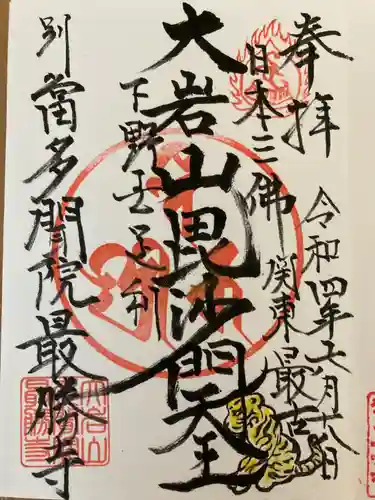 奉拝
令和四年七月十八日
日本三佛
関東最古
大岩山毘沙門天王
下野国足利
別當多聞院最勝寺